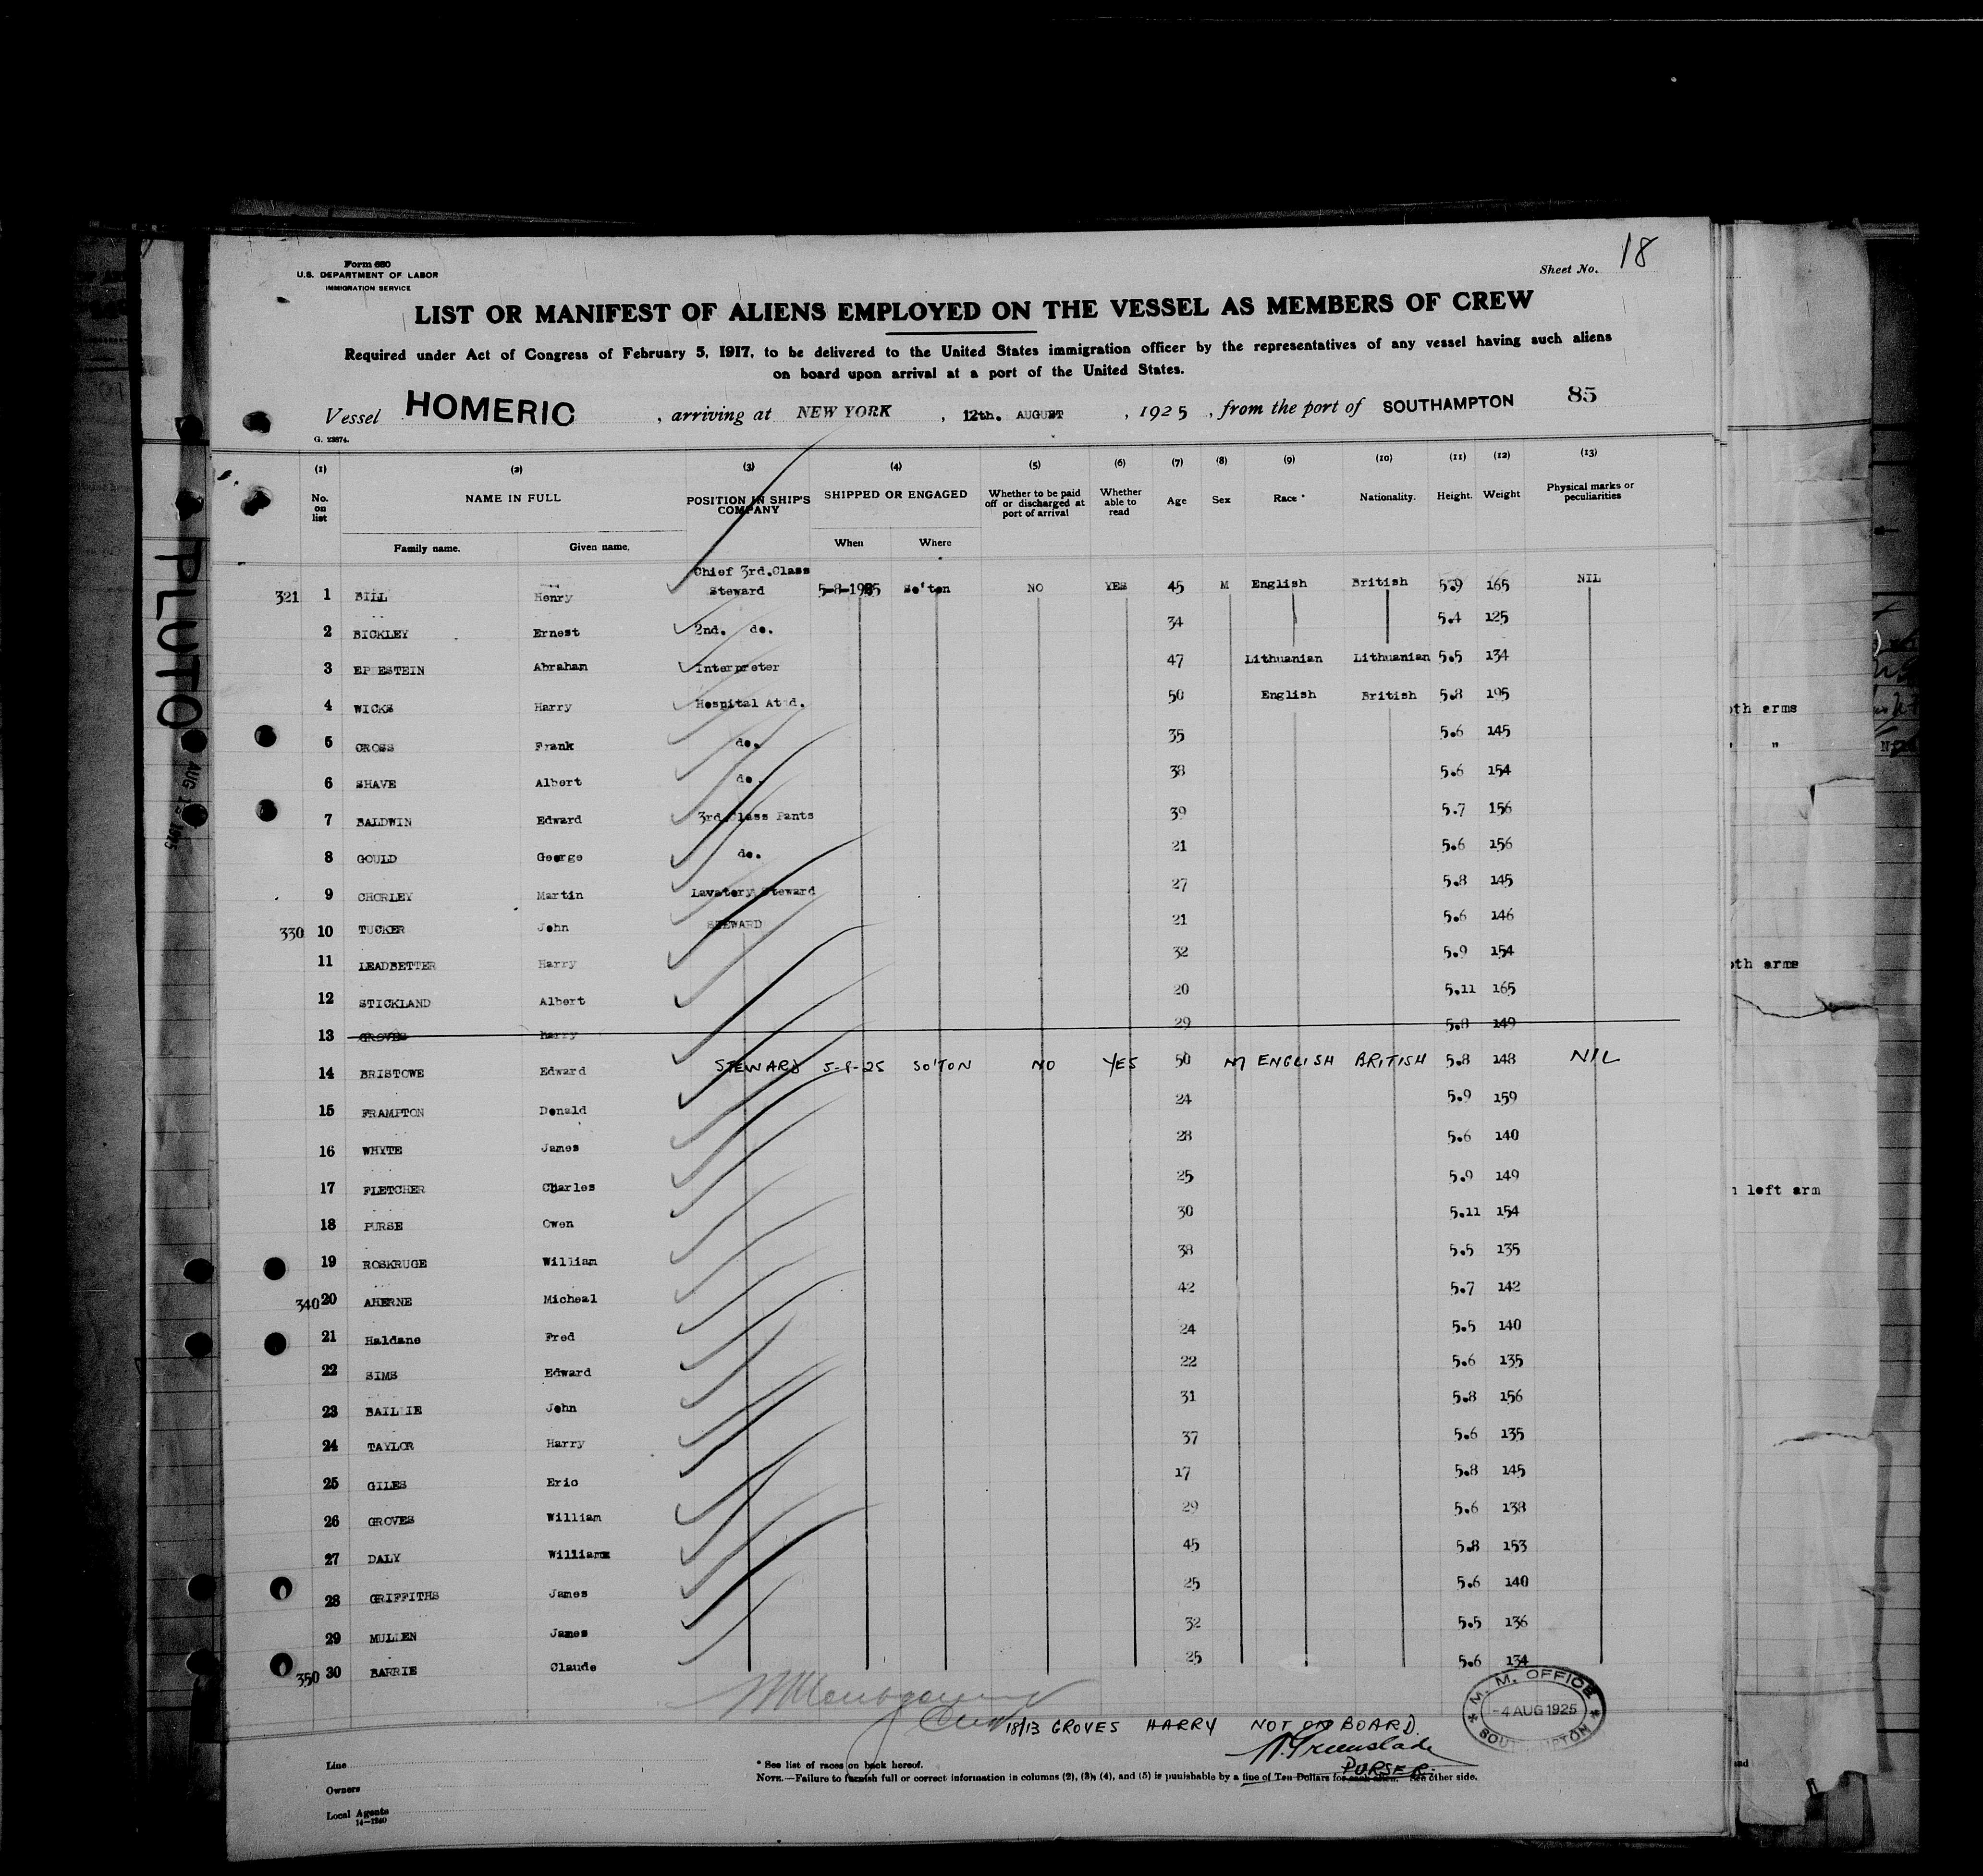 Form 680
U.S. DEPARTMENT OF LABOR
IMMIGRATION SERVICE
Sheet No. 18
LIST OR MANIFEST OF ALIENS EMPLOYED ON THE VESSEL AS MEMBERS OF CREW
Required under Act of Congress of February 5, 1917, to be delivered to the United States immigration officer by the representatives of any vessel having such aliens
on board upon arrival at a port of the United States.
85
Vessel HOMERIC , arriving at NEW YORK , 12th. AUGUST , 1925 , from the port of SOUTHAMPTON
G. 23874.
(1) (2) (3) (4) (5) (6) (7) (8) (9) (10) (11) (12) (13)
No. on list NAME IN FULL POSITION IN SHIP'S COMPANY SHIPPED OR ENGAGED Whether to be paid off or discharged at port of arrival Whether able to read Age Sex Race * Nationality. Height. Weight Physical marks or peculiarities
Family name. Given name. When Where
Chief 3rd.Class
321 1 BILL Henry Steward 5-8-1925 So'ton NO YES 45 M English British 5.9 165 NIL
2 BICKLEY Ernest 2nd. do. 34 5.4 125
3 EP ESTEIN Abraham Interpreter 47 Lithuanian Lithuanian 5.5 134
4 WICKS Harry Hospital At d. 50 English British 5.8 195
5 CROSS Frank do. 35 5.6 145
6 SHAVE Albert do. 38 5.6 154
7 BALDWIN Edward 3rd.Class Pants 39 5.7 156
8 GOULD George do. 21 5.6 156
9 CHORLEY Martin Lavatory Steward 27 5.8 145
330 10 TUCKER John STEWARD 21 5.6 146
11 LEADBETTER Harry 32 5.9 154
12 STICKLAND Albert 20 5.11 165
13 GROVES harry 29 5.8 149
14 BRISTOWE Edward STEWARD 5-8-25 SO'TON NO YES 50 M ENGLISH BRITISH 5.8 148 NIL
15 FRAMPTON Donald 24 5.9 159
16 WHYTE James 28 5.6 140
17 FLETCHER Charles 25 5.9 149
18 PURSE Owen 30 5.11 154
19 ROSKRUGE William 38 5.5 135
340 20 AHERNE Micheal 42 5.7 142
21 Haldane Fred 24 5.5 140
22 SIMS Edward 22 5.6 135
23 BAILLIE John 31 5.8 156
24 TAYLOR Harry 37 5.6 135
25 GILES Eric 17 5.8 145
26 GROVES William 29 5.6 138
27 DALY William 45 5.8 153
28 GRIFFITHS James 25 5.6 140
29 MULLEN James 32 5.5 136
350 30 BARRIE Claude 25 5.6 134
18/13 GROVES HARRY NOT ON BOARD.
N. Greenslade
PURSER.
M. M. OFFICE
-4 AUG 1925
SOUTHAMPTON
Line
Owners
Local Agents
14-1240
* See list of races on back hereof.
NOTE.—Failure to furnish full or correct information in columns (2), (3), (4), and (5) is punishable by a fine of Ten Dollars for each alien. See other side.
PLUTO
oth arms
" "
oth arms
left arm